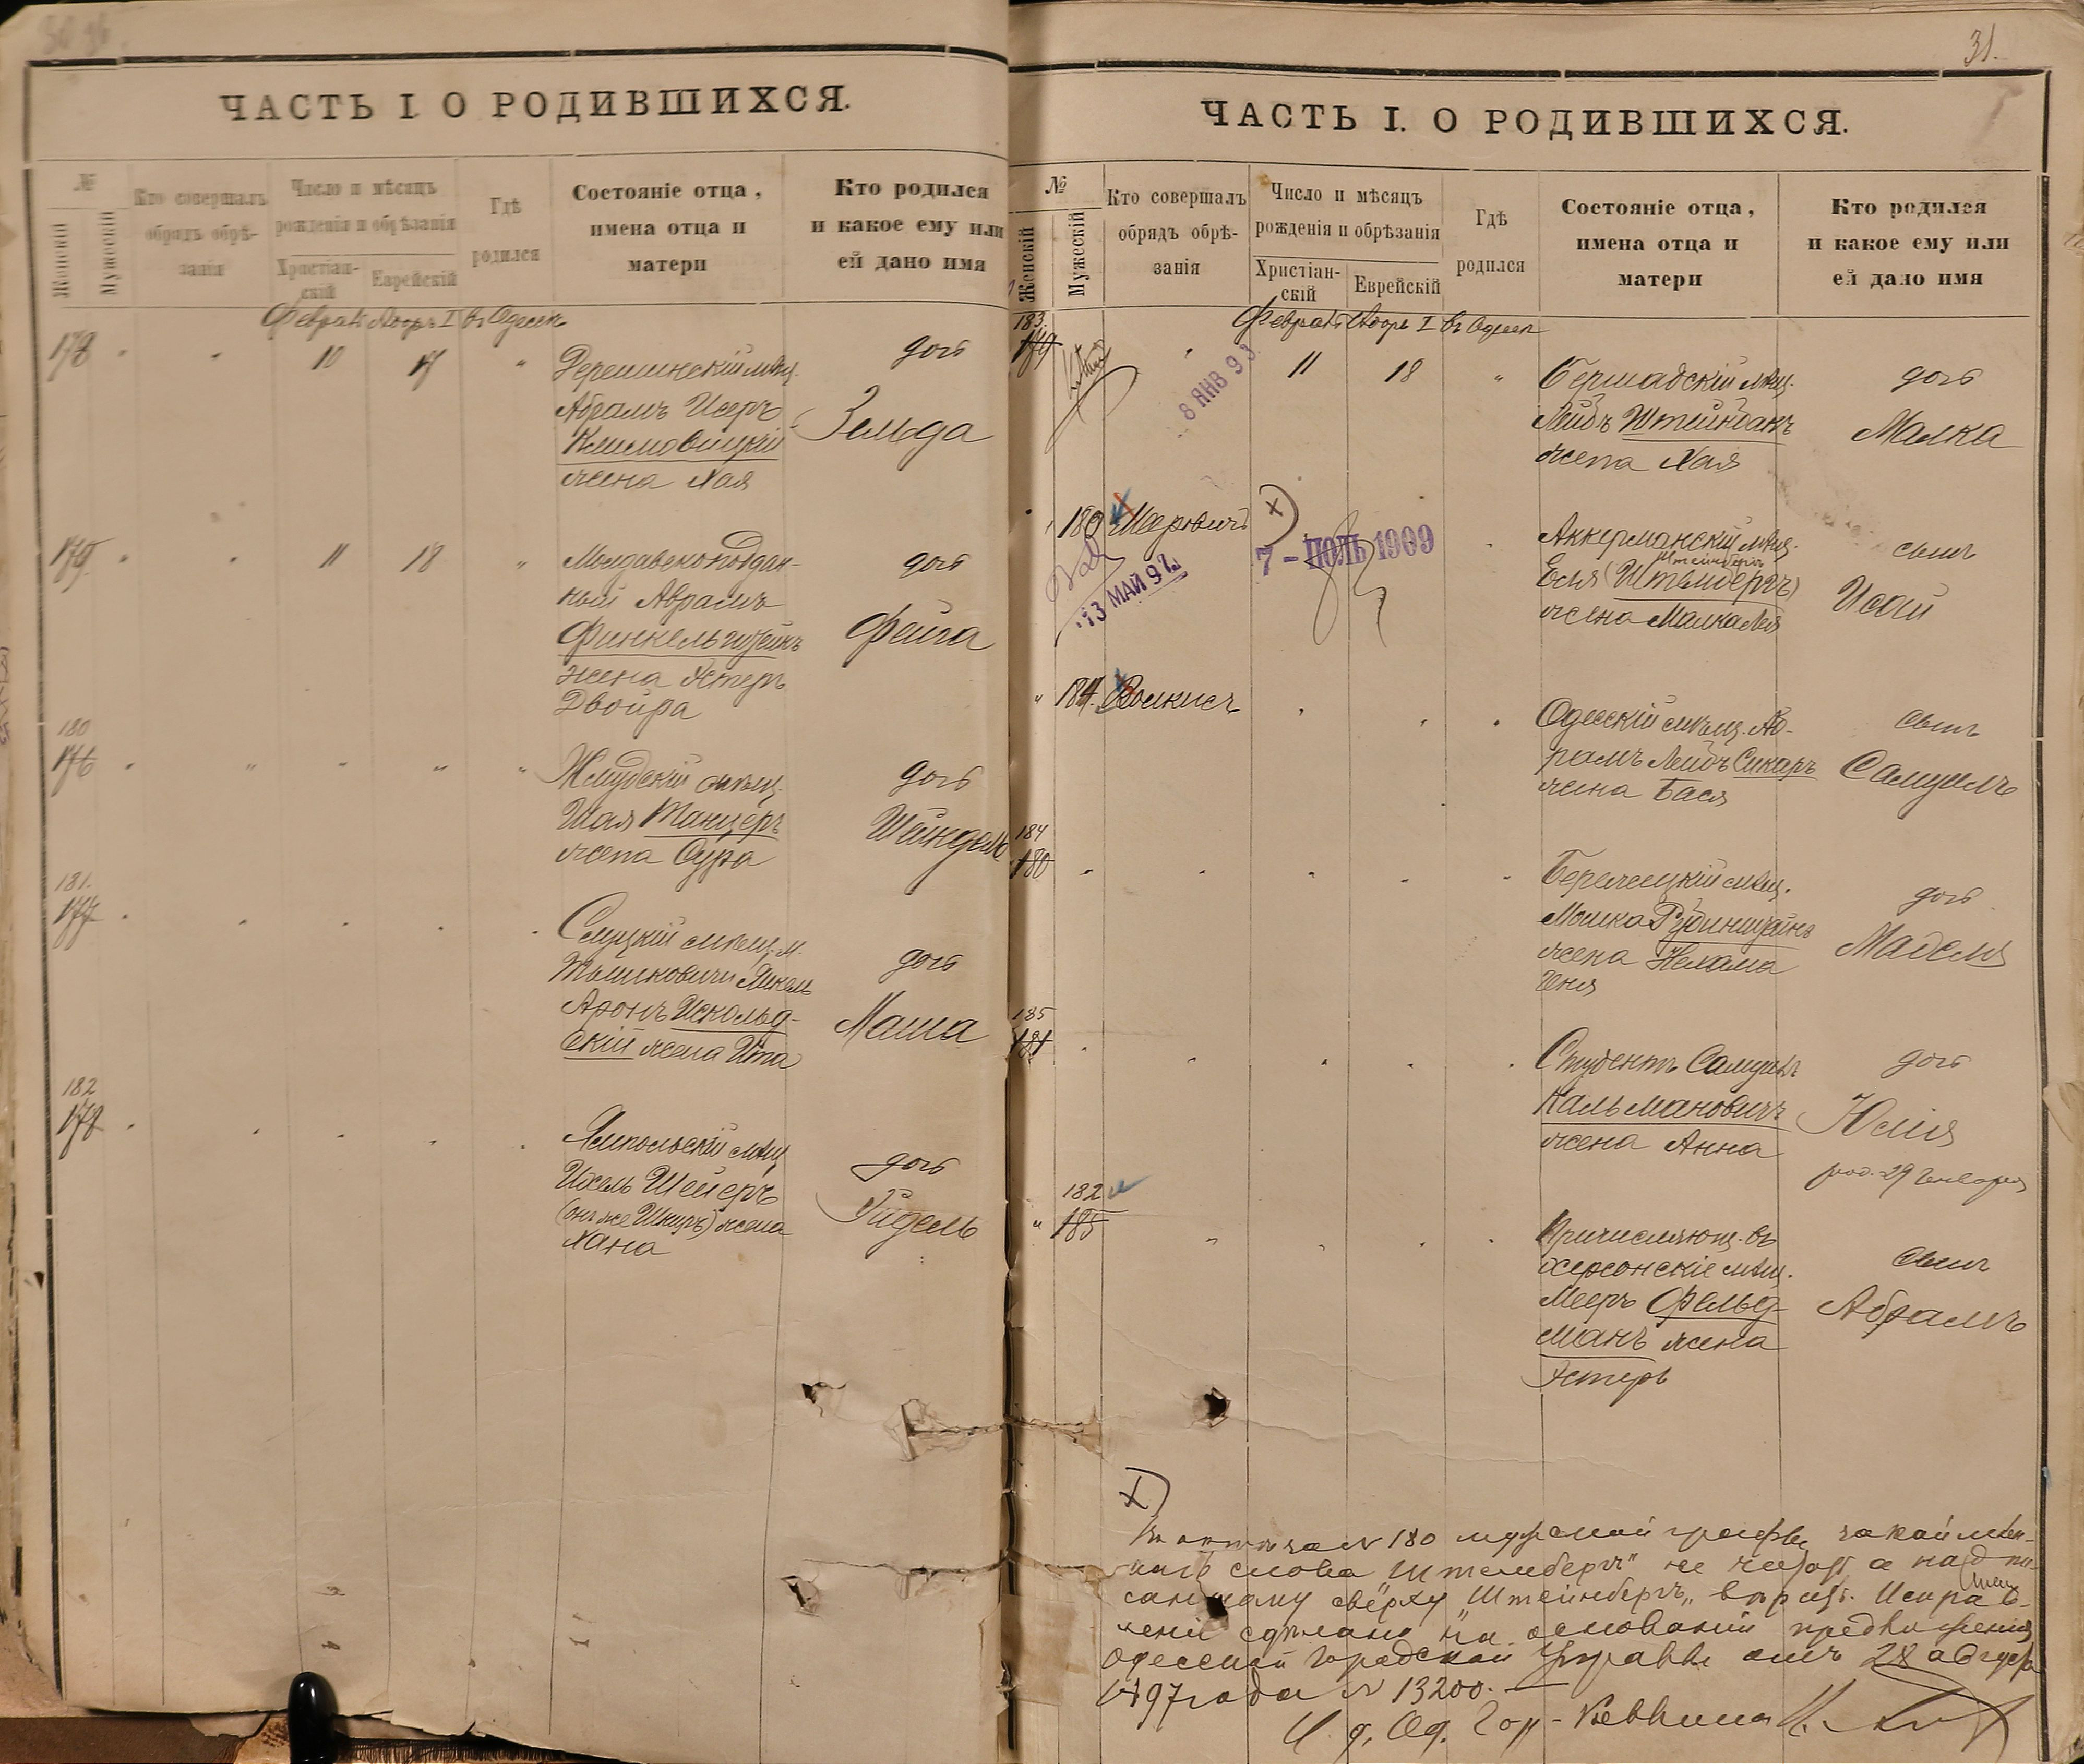 ЧАСТЬ I. О РОДИВШИХСЯ.
№
Женскій
Мужескій
Кто совершалъ
обрядъ обрѣ-
занія
Число и мѣсяцъ
рожденія и обрѣзанія
Христіан-
скій
Еврейскій
Гдѣ
родился
Состояніе отца,
имена отца и
матери
Кто родился
и какое ему или
ей дано имя
Февраля Адаръ I въ Одессѣ
178
10
17
мѣщ.
Абрамъ Исеръ
Климовицкій
жена Хая
дочь
Зельда
179
11
18
Молдавскоподдан-
ный Аврамъ
Финкельштейнъ
жена Эстеръ
Двойра
дочь
Фейга
180
176
Жмудскій мѣщ.
Шая Танцеръ
жена Сура
дочь
Шейндель
181.
177
Слуцкій мѣщ. м.
Тышковичи Янкель
Аронъ Исколъд-
скій жена Ита
дочь
Маша
182
178
Ямпольскій мѣщ
Шейеръ
(онъ же Шнуръ) жена
Хана
дочь
31.
ЧАСТЬ I. О РОДИВШИХСЯ.
№
Женскій
Мужескій
Кто совершалъ
обрядъ обрѣ-
занія
Число и мѣсяцъ
рожденія и обрѣзанія
Христіан-
скій
Еврейскій
Гдѣ
родился
Состояніе отца,
имена отца и
матери
Кто родился
и какое ему или
ей дано имя
Февраля Адаръ I въ Одессѣ
183.
179
8 ЯНВ 93
11
18
Бершадскій мѣщ.
Лейбъ Штейнбанъ
жена Хая
дочь
Малка
180
Меровичъ
X)
13 МАЙ 97
7 - ІЮЛЬ 1909
Аккерманскій мѣщ.
Штейнбергъ
(Штембергъ)
жена Малка Лея
сынъ
Исай
181.
Волкисъ
Одесскій мѣщ. Аб-
рамъ Лейбъ Сикаръ
жена Бася
сынъ
Самуилъ
184
180
мѣщ.
Мошка Рубинштейнъ
жена Нехама
Геня
дочь
185
181
Студентъ Самуилъ
Кальмановичъ
жена Анна
дочь
Юлія
род. 29 Января
182
185
Причисляющ. въ
херсонскіе мѣщ.
Мееръ Фельд-
манъ жена
Эстеръ
сынъ
Абрамъ
X)
Въ актѣ за № 180 мужской графы
слова „Штембергъ" не читать а надпи-
санному сверху „Штейнбергъ" вѣрить. Исправ-
леніе сдѣлано на основаніи предложенія
Одесской Городской Управы отъ 28 августа
1897 года № 13200.—
И. д. Од. Гор. Раввина